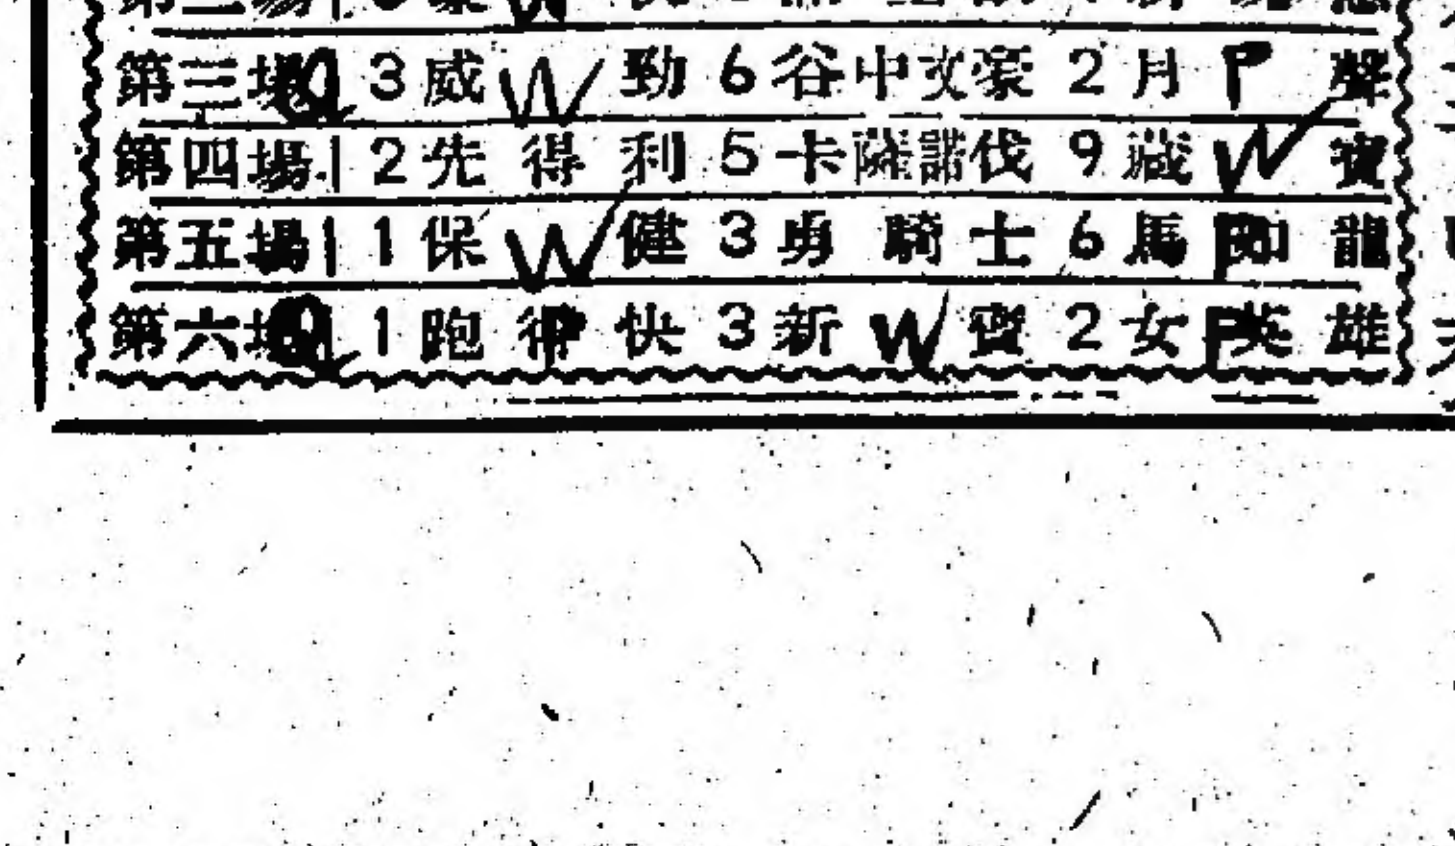 第三場 Q 3 威 W 勁 6 谷中文豪 2 月 P 聲
第四場 2 先得利 5 卡薩諾伐 9 藏 W 寶
第五場 1 保 W 健 3 勇騎士 6 馬 P 如龍
第六場 Q 1 跑得 P 快 3 新 W 寶 2 女 P 英雄